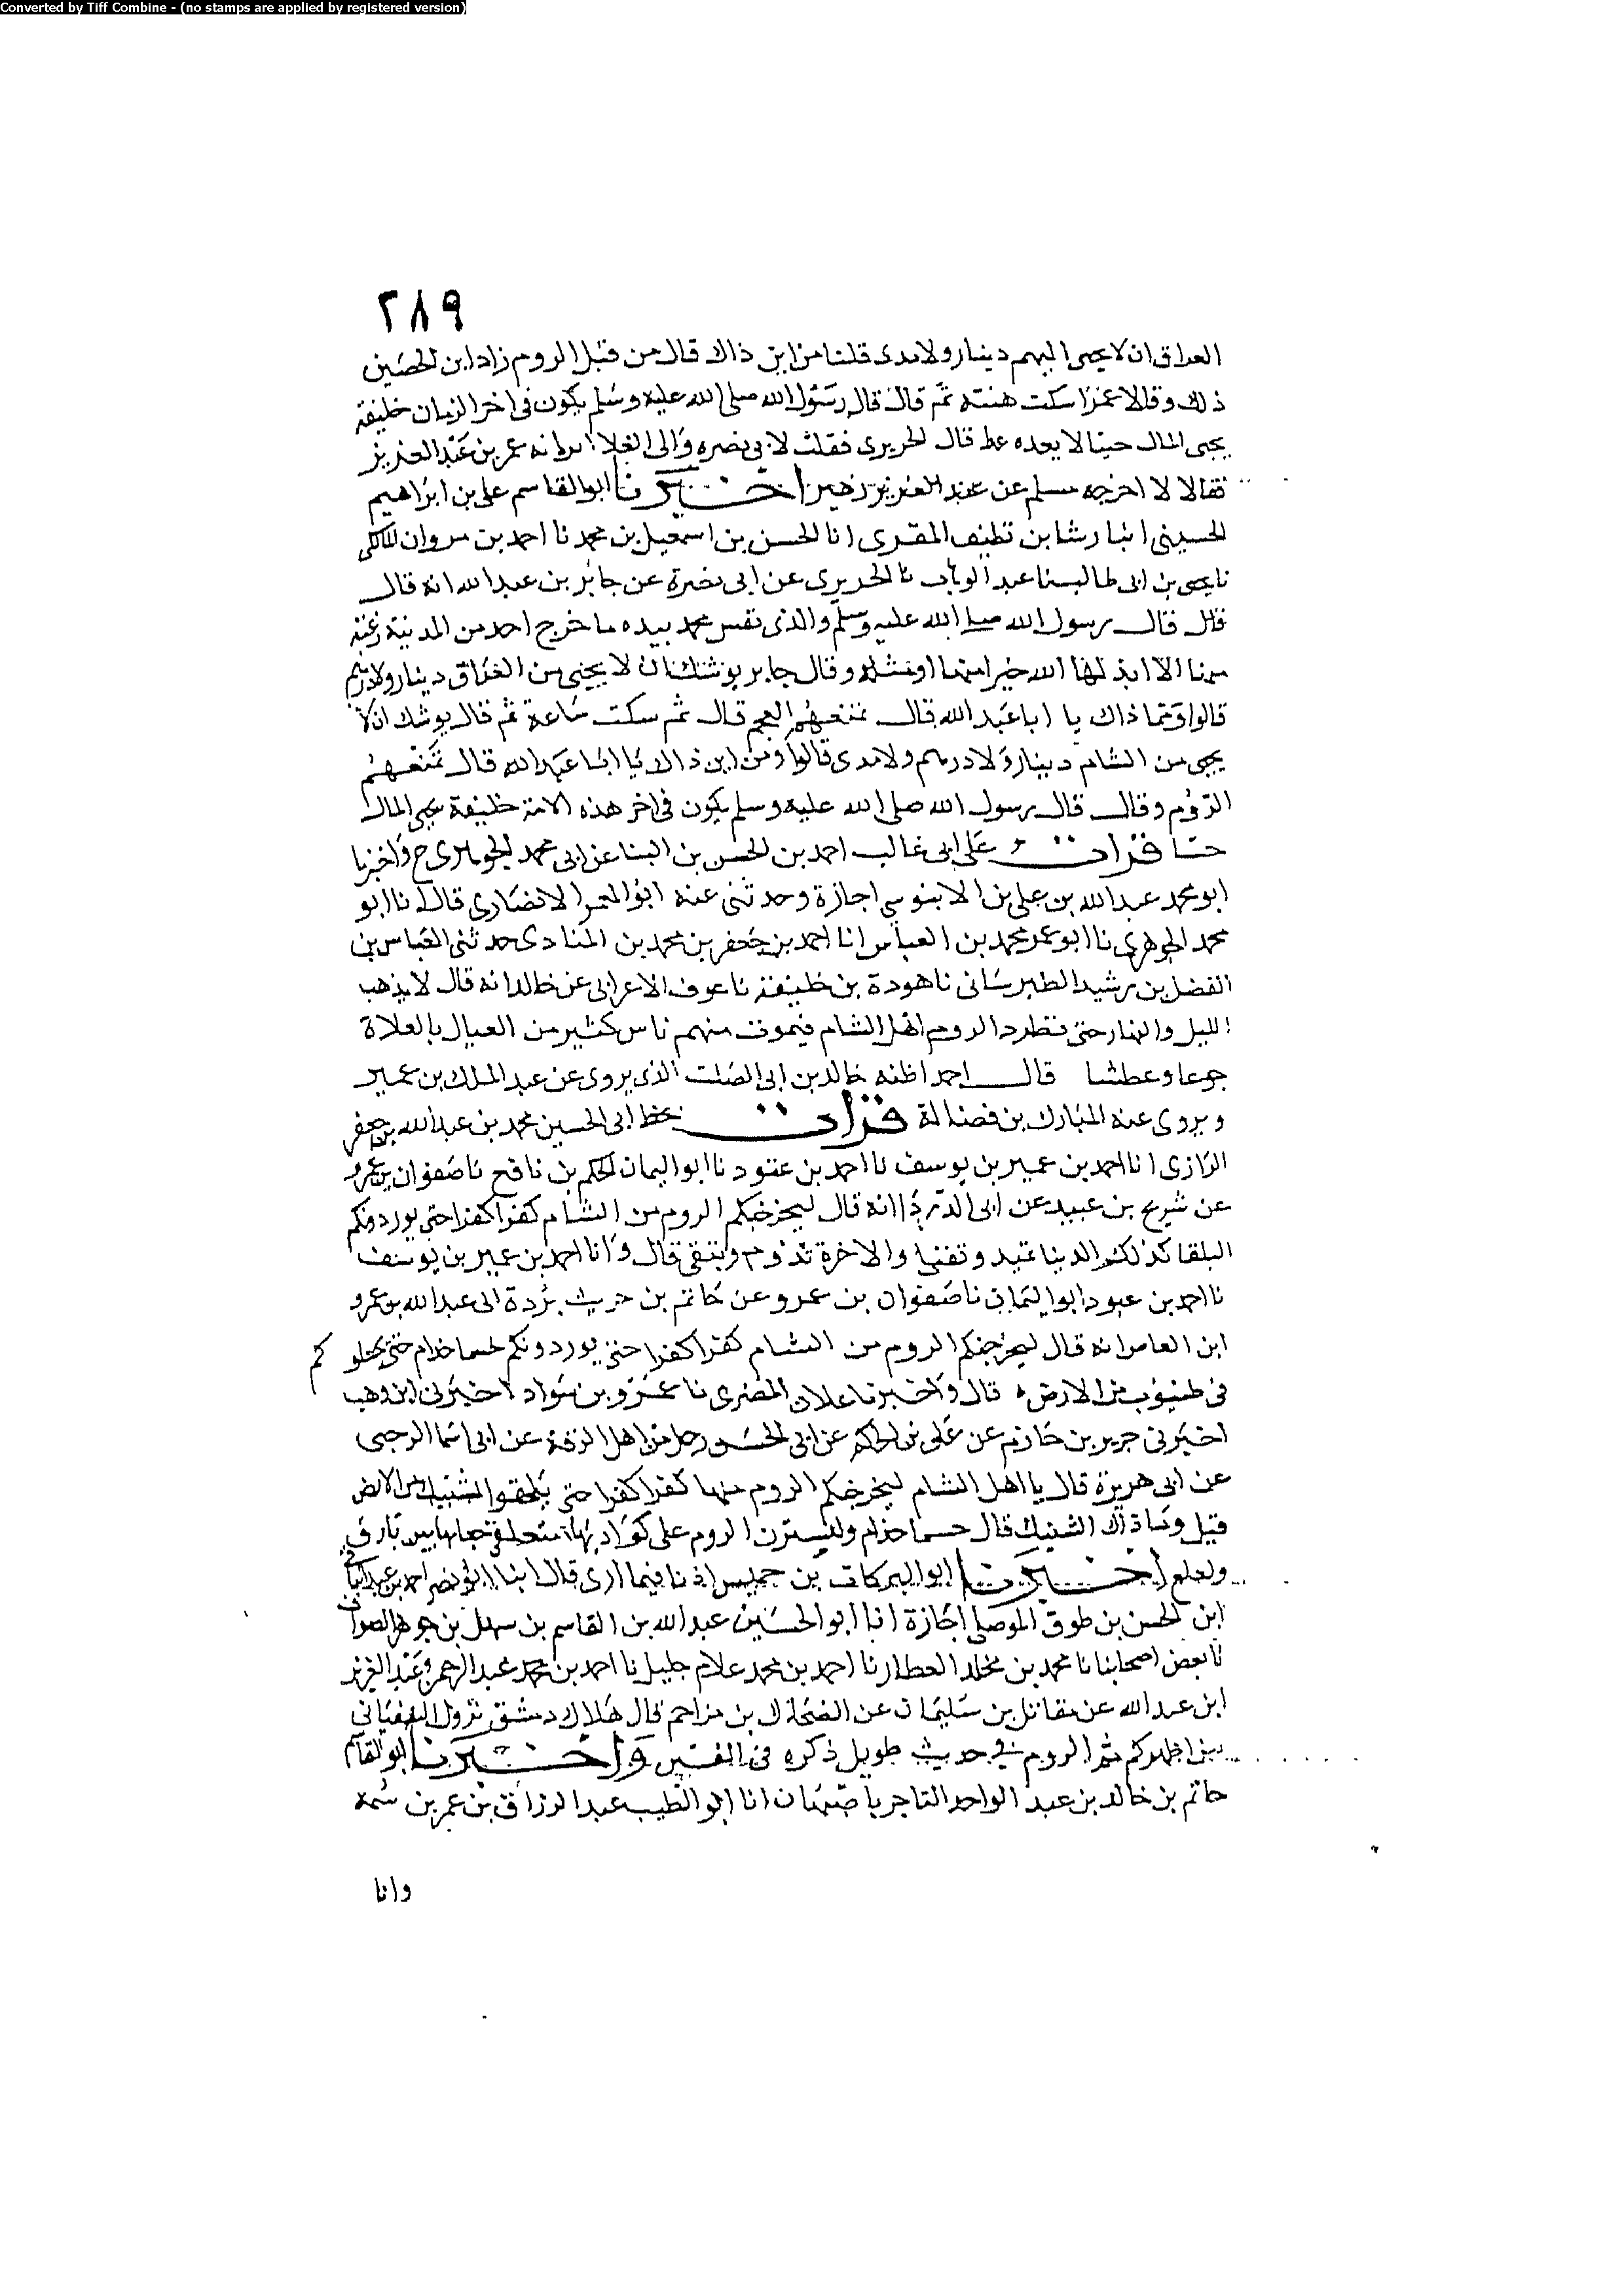 Converted by Tiff Combine - (no stamps are applied by registered version)
٢٨٩
العراق ان لا يجبى اليهم دينار ولا مدى قلنا من اين ذاك قال من قبل الروم زاد ابن الحصين
ذلك وقالا ثم سكت هنيهة ثم قال قال رسول الله صلى الله عليه وسلم يكون فى اخر الزمان خليفة
يحيى المال حثيا لا يعده عدا قال الحريرى فقلت لابى نضره والى العلا انه عمر بن عبد العزيز
فقالا لا اخرجه مسلم عن زهير اخبرنا ابو القاسم على بن ابراهيم
الحسينى انبا رشا بن نظيف المقرى انا الحسن بن اسمعيل بن محمد نا احمد بن مروان المالكى
نا يحيى بن ابى طالب نا عبد الوهاب نا الحريرى عن ابى نضرة عن جابر بن عبد الله انه قال
قال قال رسول الله صلى الله عليه وسلم والذى نفس محمد بيده ما خرج احد من المدينة رغبة
الا ابد لها الله خيرا منها او مثله وقال جابر يوشك ان لا يجبى من العراق دينار ولا درهم
قالوا ومما ذاك يا ابا عبد الله قال تمنعهم العجم قال ثم سكت ساعة ثم قال يوشك ان لا
يجبى من الشام دينار ولا درهم ولا مدى قالوا ومن اين ذاك يا ابا عبد الله قال تمنعهم
الروم وقال قال رسول الله صلى الله عليه وسلم يكون فى اخر هذه الامة خليفة يحيى المال
حثيا قرات على ابى غالب احمد بن الحسن بن البنا عن ابى محمد الجوهرى ح واخبرنا
ابو محمد عبد الله بن على بن الابنوسي اجازة وحدثنى عنه ابو المعمر الانصارى قال انا ابو
محمد الجوهرى نا ابو عمر محمد بن العباس انا احمد بن جعفر بن محمد بن المنادى حدثنى العباس بن
الفضل بن رشيد الطبرستانى نا هودة بن خليفة نا عوف الاعرابى عن خالد انه قال لا يذهب
الليل والنهار حتى تطرد الروم اهل الشام فيموت منهم ناس كثير من العيال بالعلاة
جوعا وعطشا قال احمد اظنه خالد بن ابى الصلت الذى يروى عن عبد الملك بن عمير
ويروى عنه المبارك بن فضالة قرات بخط ابى الحسين محمد بن عبد الله بن جعفر
الرازى انا احمد بن عمير بن يوسف نا احمد بن عبود نا ابو اليمان الحكم بن نافع نا صفوان بن عمرو
عن شريح بن عبيد عن ابى الدرداء انه قال ليخرجنكم الروم من الشام كفرا كفرا حتى يوردونكم
البلقا كذلك الدنيا تبيد وتفنى والاخرة تدوم وتبقى قال وانا احمد بن عمير بن يوسف
نا احمد بن عبود ابو اليمان نا صفوان بن عمرو عن حاتم بن حريث عبد الله بن عمرو
ابن العاص انه قال ليخرجنكم الروم من الشام كفرا كفرا حتى يوردونكم حسما جذام حتى يجعلو كم
فى طنبوب من الارض قال واخبرنا علان المصرى نا عمرو بن سواد اخبرنى ابن وهب
اخبرنى جرير بن حازم عن على بن الحكم عن ابى الحسن رجل من اهل عن ابى اسما الرحبى
عن ابى هريرة قال يا اهل الشام ليخرجنكم الروم منها كفرا كفرا حتى يلحقوا من الارض
قيل وما ذاك قال حسما جذام الروم على متعلقة جعابها بين بارق
ولعلع اخبرنا ابو البركات بن خميس اذنا فيما ارى قال انبا ابو نصر احمد بن عبد الباقى
ابن الحسن بن طوق الموصلى اجازة انا ابو الحسين عبد الله بن القاسم بن سهل بن جوهر الصواف
نا بعض اصحابنا نا محمد بن مخلد العطار نا احمد بن محمد غلام خليل نا احمد بن محمد عبد الرحمن وعبد العزيز
ابن عبد الله عن مقاتل بن سليمان عن الضحاك بن مزاحم قال هلاك دمشق نزول السفيانى
بين اظهركم ثم الروم في حديث طويل ذكره فى الفتن واخبرنا ابو القاسم
حاتم بن خالد بن عبد الواحد التاجر باصبهان انا ابو الطيب عبد الرزاق بن عمر بن شمه
وانا